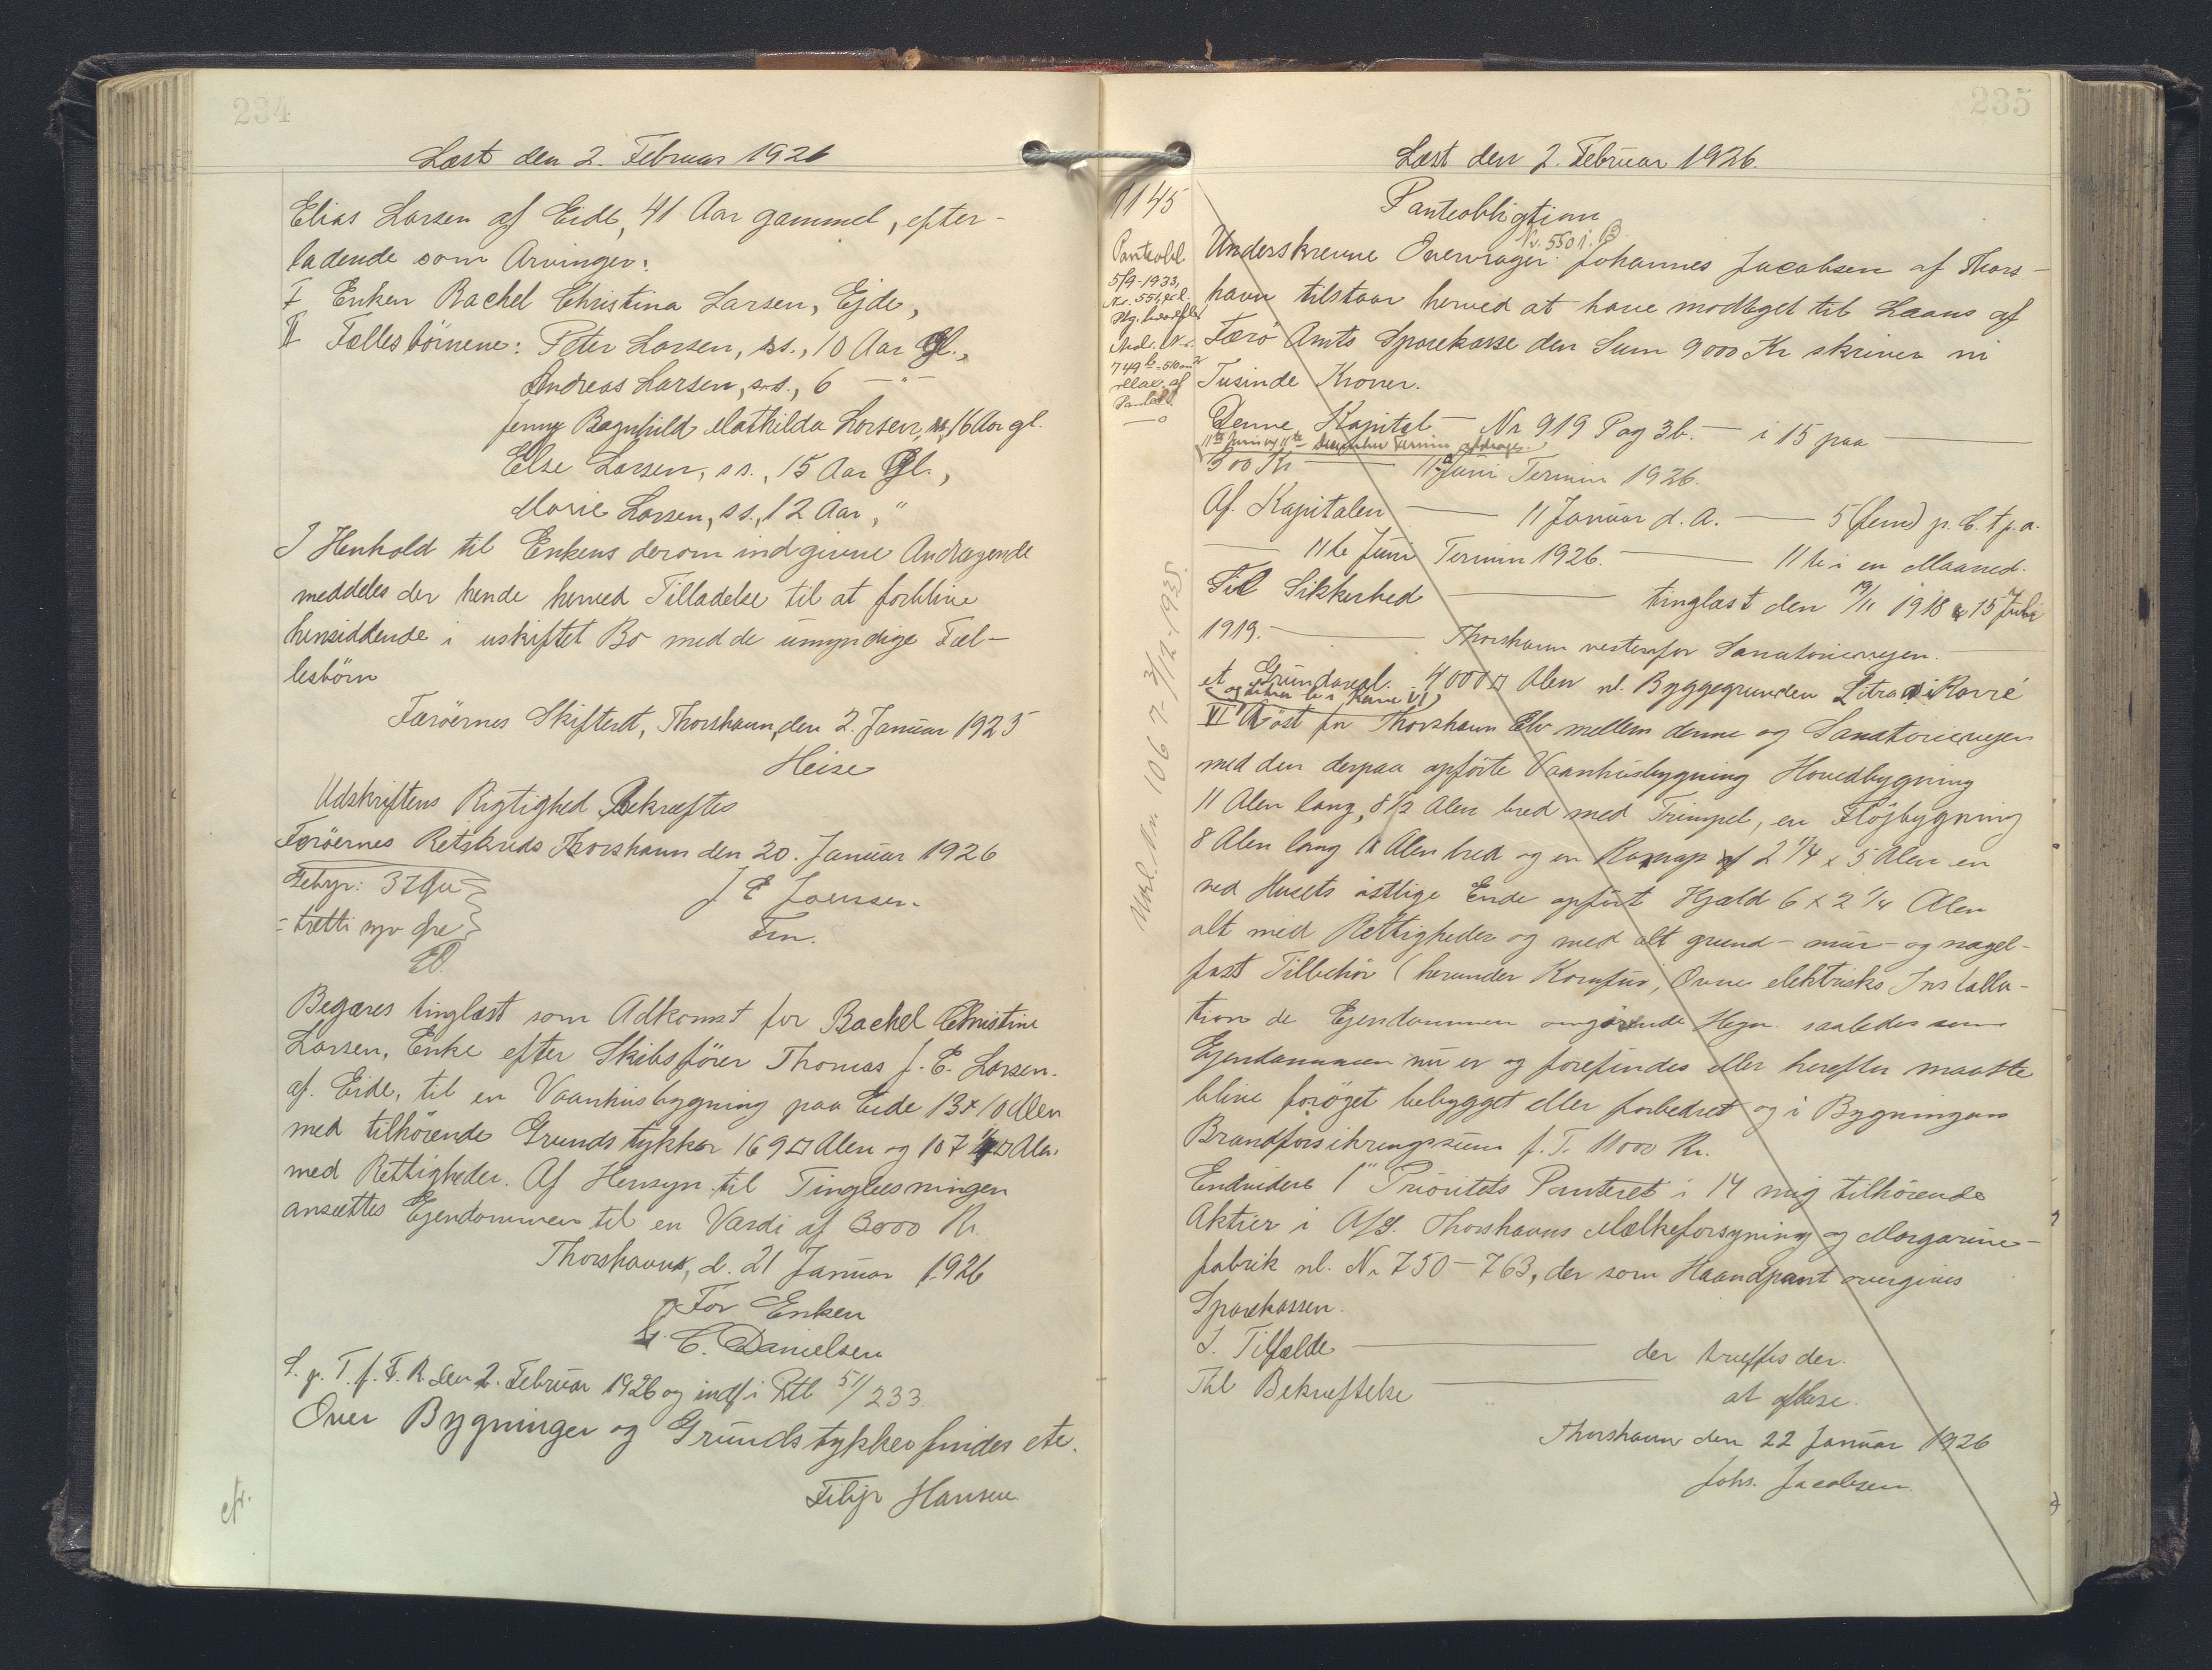 234
Læst den 2. Februar 1926
Elias Larsen af Eide, 41 Aar gammel, efter-
ladende som Arvinger:
I Enken Rachel Christina Larsen, Ejde,
II Fællesbörnene: Peter Larsen, ss., 10 Aar Gl.,
Andreas Larsen, s.s., 6 — " —
Jenny Ragnhild Mathilda Larsen, ss, 16 Aar gl.
Else Larsen, ss., 15 Aar Gl.,
Marie Larsen, ss., 12 Aar, "
I Henhold til Enkens derom indgivne Andragende
meddeles der hende herved Tilladelse til at forblive
hensiddende i uskiftet Bo med de umyndige Fæl-
lesbörn
Færöernes Skifteret, Thorshavn, den 2. Januar 1925
Heise
Udskriftens Rigtighed Bekræftes
Færöernes Retskreds Thorshavn den 20. Januar 1926
Gebyr: 37 Øre
= tretti syv Øre
J E Joensen
Fm.
Begæres tinglæst som Adkomst for Rachel Christine
Larsen, Enke efter Skibsförer Thomas J. E. Larsen
af Eide, til en Vaanhusbygning paa Eide 13 x 10 Alen
med tilhörende Grundstykker 169 □ Alen og 107 □ Alen
med Rettigheder. Af Hensyn til Tinglæsningen
ansættes Ejendommen til en Værdi af 3000 Kr.
Thorshavn, d. 21 Januar 1926
For Enken
C. Danielsen
L. p. T. f. F. R. den 2. Februar 1926 og indf i Ptl 51/233
Over Bygninger og Grundstykker findes etc.
Filip Hansen
cfr.
235
Læst den 2. Februar 1926.
1145
Panteobligation
Nr. 550 i. B.
Panteobl
5/9-1933,
Nr. 551,
749 b = 510 m2
Underskrevne Overvrager Johannes Jacobsen af Thors-
havn tilstaar herved at have modtaget til Laans af
Færö Amts Sparekasse den Sum 9000 Kr skriver ni
Tusinde Kroner.
Denne Kapital — Nr 919 Pag 3b. — i 15 paa —
11te Juni og 11te December Termin
300 Kr — 11 Juni Termin 1926.
Af Kapitalen — 11 Januar d. A. — 5 (fem) p. C. t p. a.
— 11te Juni Termin 1926. — 11te i en Maaned.
Til Sikkerhed — tinglæst den 19/11 1918 & 15 Juli
1919. — Thorshavn vestenfor Sanatorievejen. —
et Grundareal 4000 □ Alen nl. Byggegrunden Litra
VI öst for Thorshavn Elv mellem denne og Sanatorievejen
med den derpaa opförte Vaanhusbygning Hovedbygning
11 Alen lang, 8 1/2 Alen bred med Trempel, en Flöjbygning
8 Alen lang Alen bred og en af 2 1/4 x 5 Alen en
ved Husets östlige Ende opfört Hjald 6 x 2 1/4 Alen
alt med Rettigheder og med alt grund- mur- og nagel-
fast Tilbehör (herunder Komfur, Ovne elektriske Installa-
tion de Ejendommen omgivende Hegn saaledes som
Ejendommen nu er og forefindes eller herefter maatte
blive foröget bebygget eller forbedret og i Bygningens
Brandforsikringssum f. T. 11000 Kr.
Endvidere 1" Prioritets Panteret i 14 mig tilhörende
Aktier i A/S. Thorshavns Mælkeforsyning og Margarine-
fabrik nl. Nr 750 – 763, der som Haandpant overgives
Sparekassen.
I Tilfælde — der træffes der.
Til Bekræftelse — at aflæse.
Thorshavn den 22 Januar 1926
Johs. Jacobsen.
Nr 106 7- 3/12-1935.